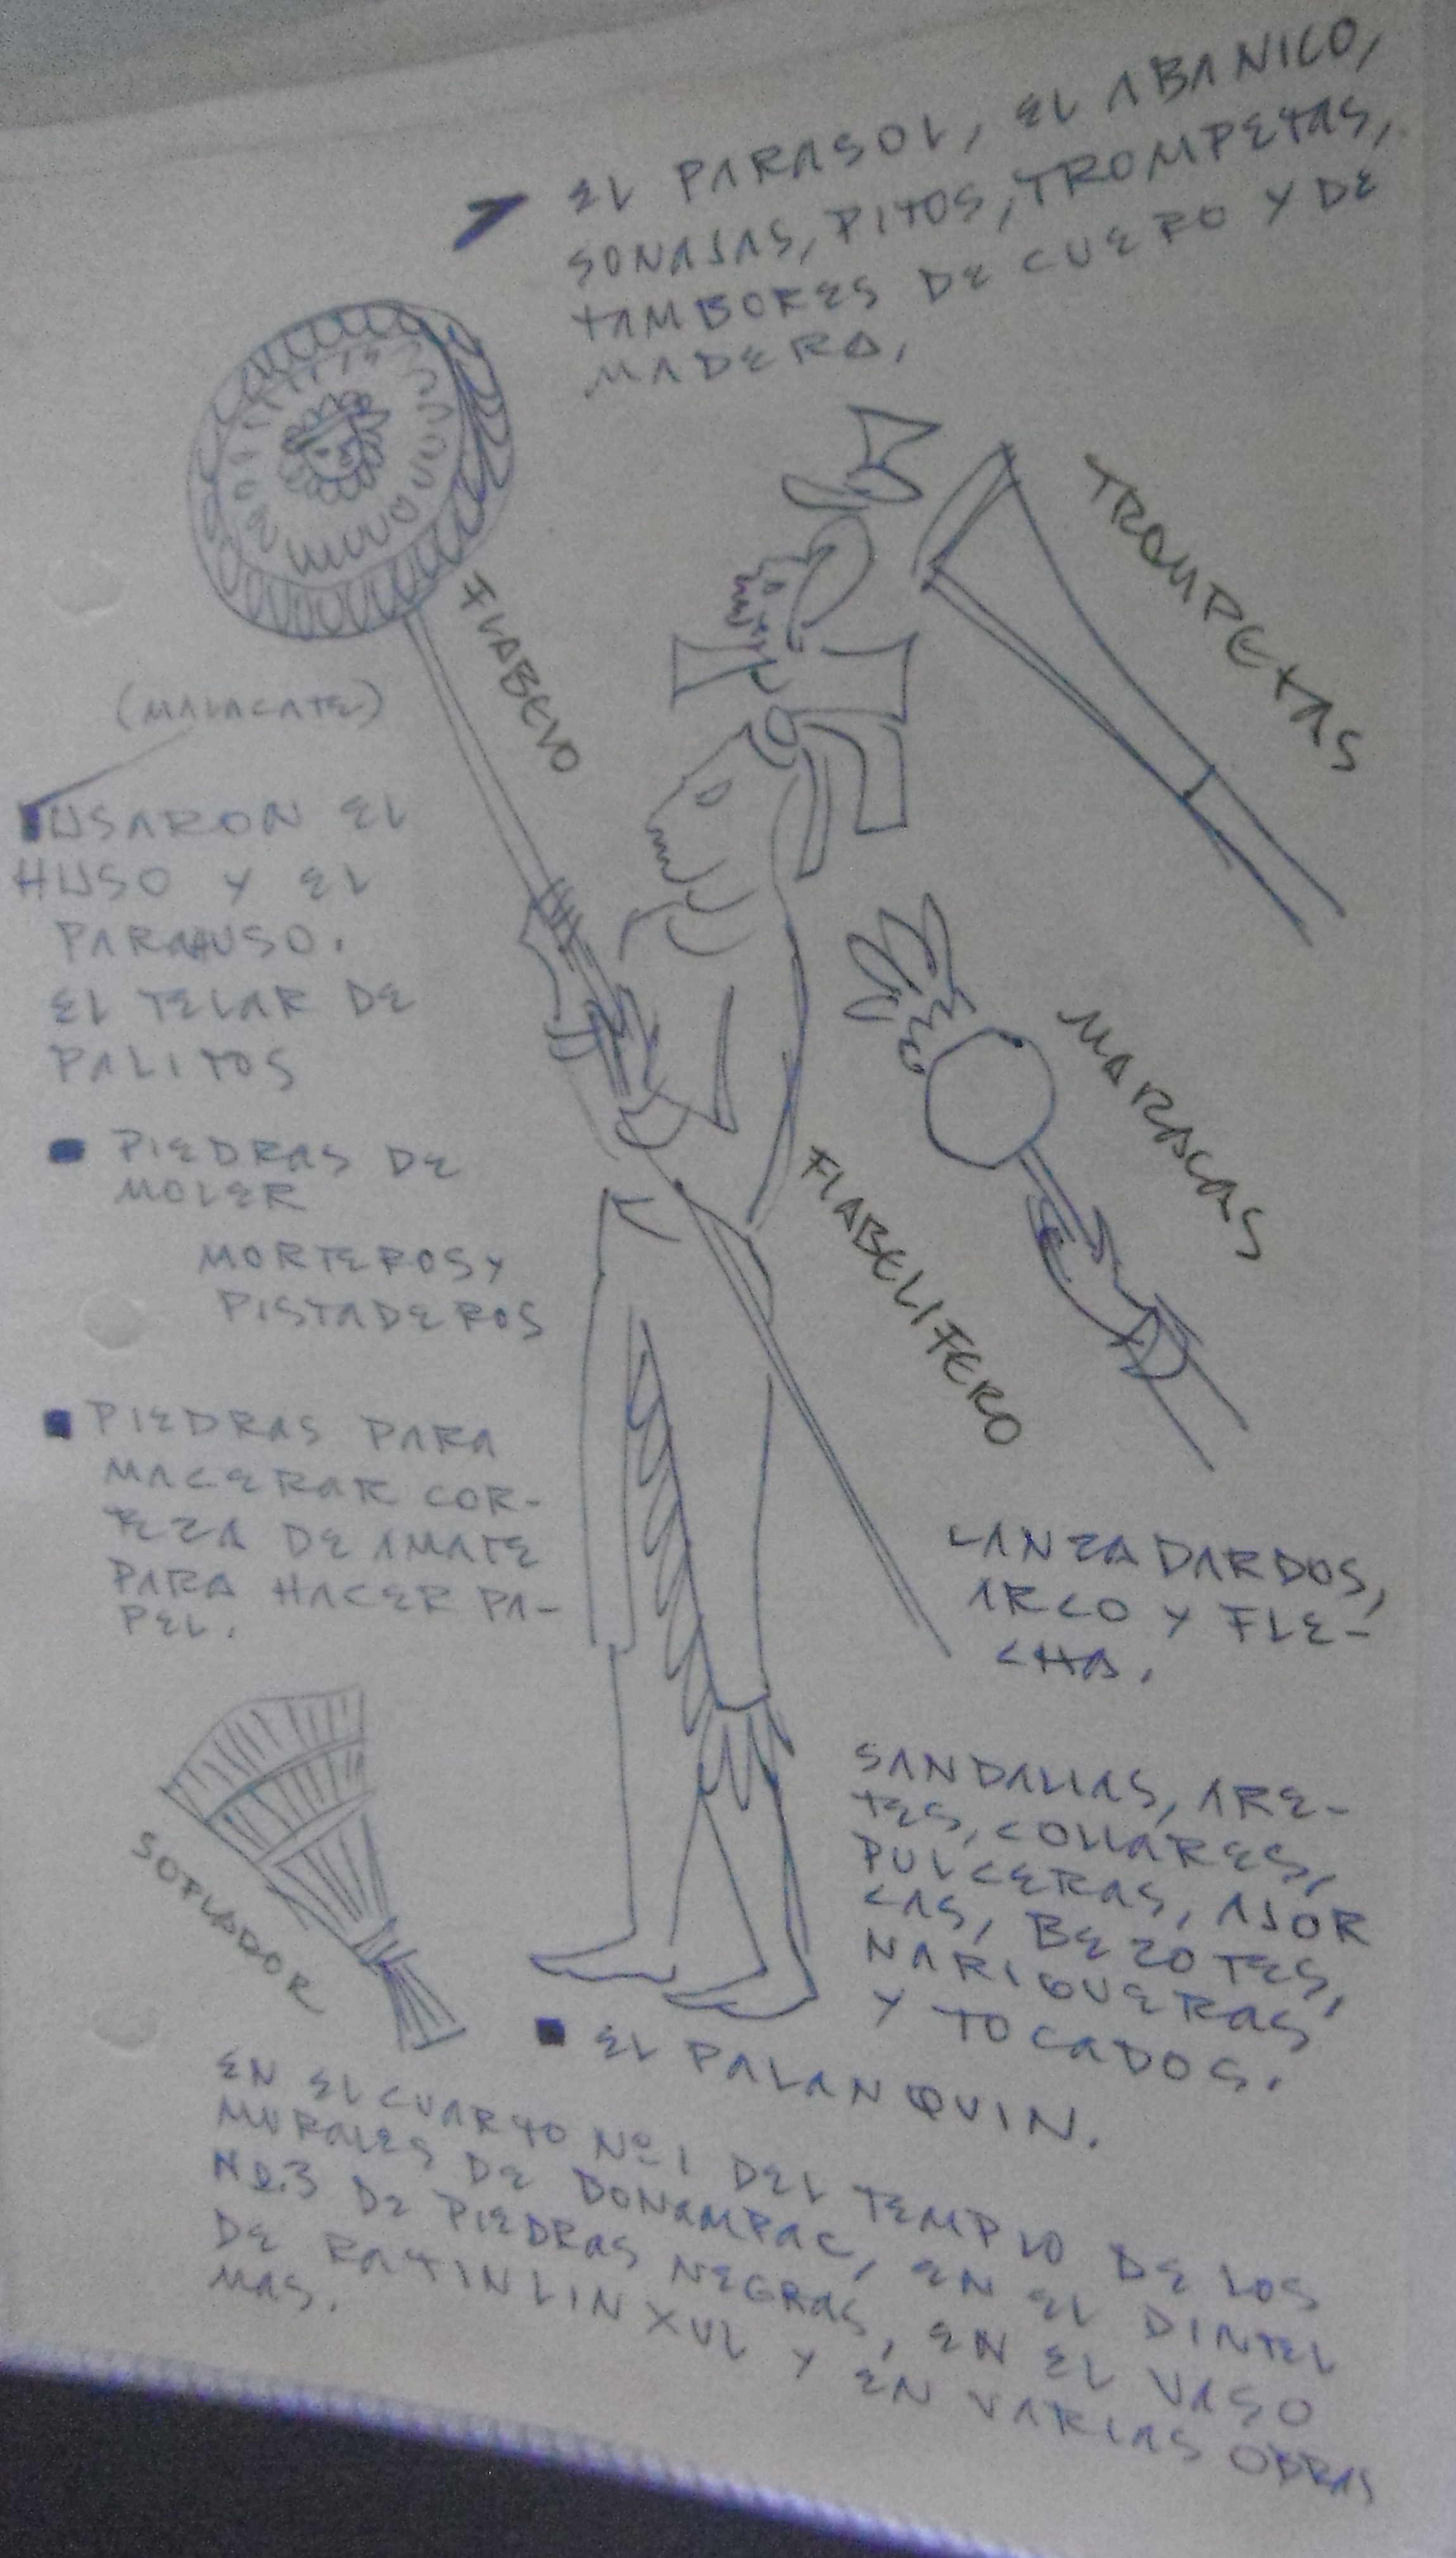 EL PARASOL, EL ABANICO,
SONAJAS, PITOS, TROMPETAS,
TAMBORES DE CUERO Y DE
MADERA,
TROMPETAS
FLABELO
(MALACATE)
USARON EL
HUSO Y EL
PARAHUSO.
EL TELAR DE
PALITOS
MARACAS
PIEDRAS DE
MOLER
MORTEROS Y
PISTADEROS
FLABELIFERO
PIEDRAS PARA
MACERAR COR-
TEZA DE AMATE
PARA HACER PA-
PEL.
LANZA DARDOS,
ARCO Y FLE-
CHA.
SOPLADOR
SANDALIAS, ARE-
TES, COLLARES,
PULCERAS, AJOR
CAS, BEZOTES,
NARIGUERAS
Y TOCADOS.
EL PALANQUIN.
EN EL CUARTO Nº 1 DEL TEMPLO DE LOS
MURALES DE BONAMPAC, EN EL DINTEL
Nº.3 DE PIEDRAS NEGRAS, EN EL VASO
DE RATINLINXUL Y EN VARIAS OBRAS
MAS.